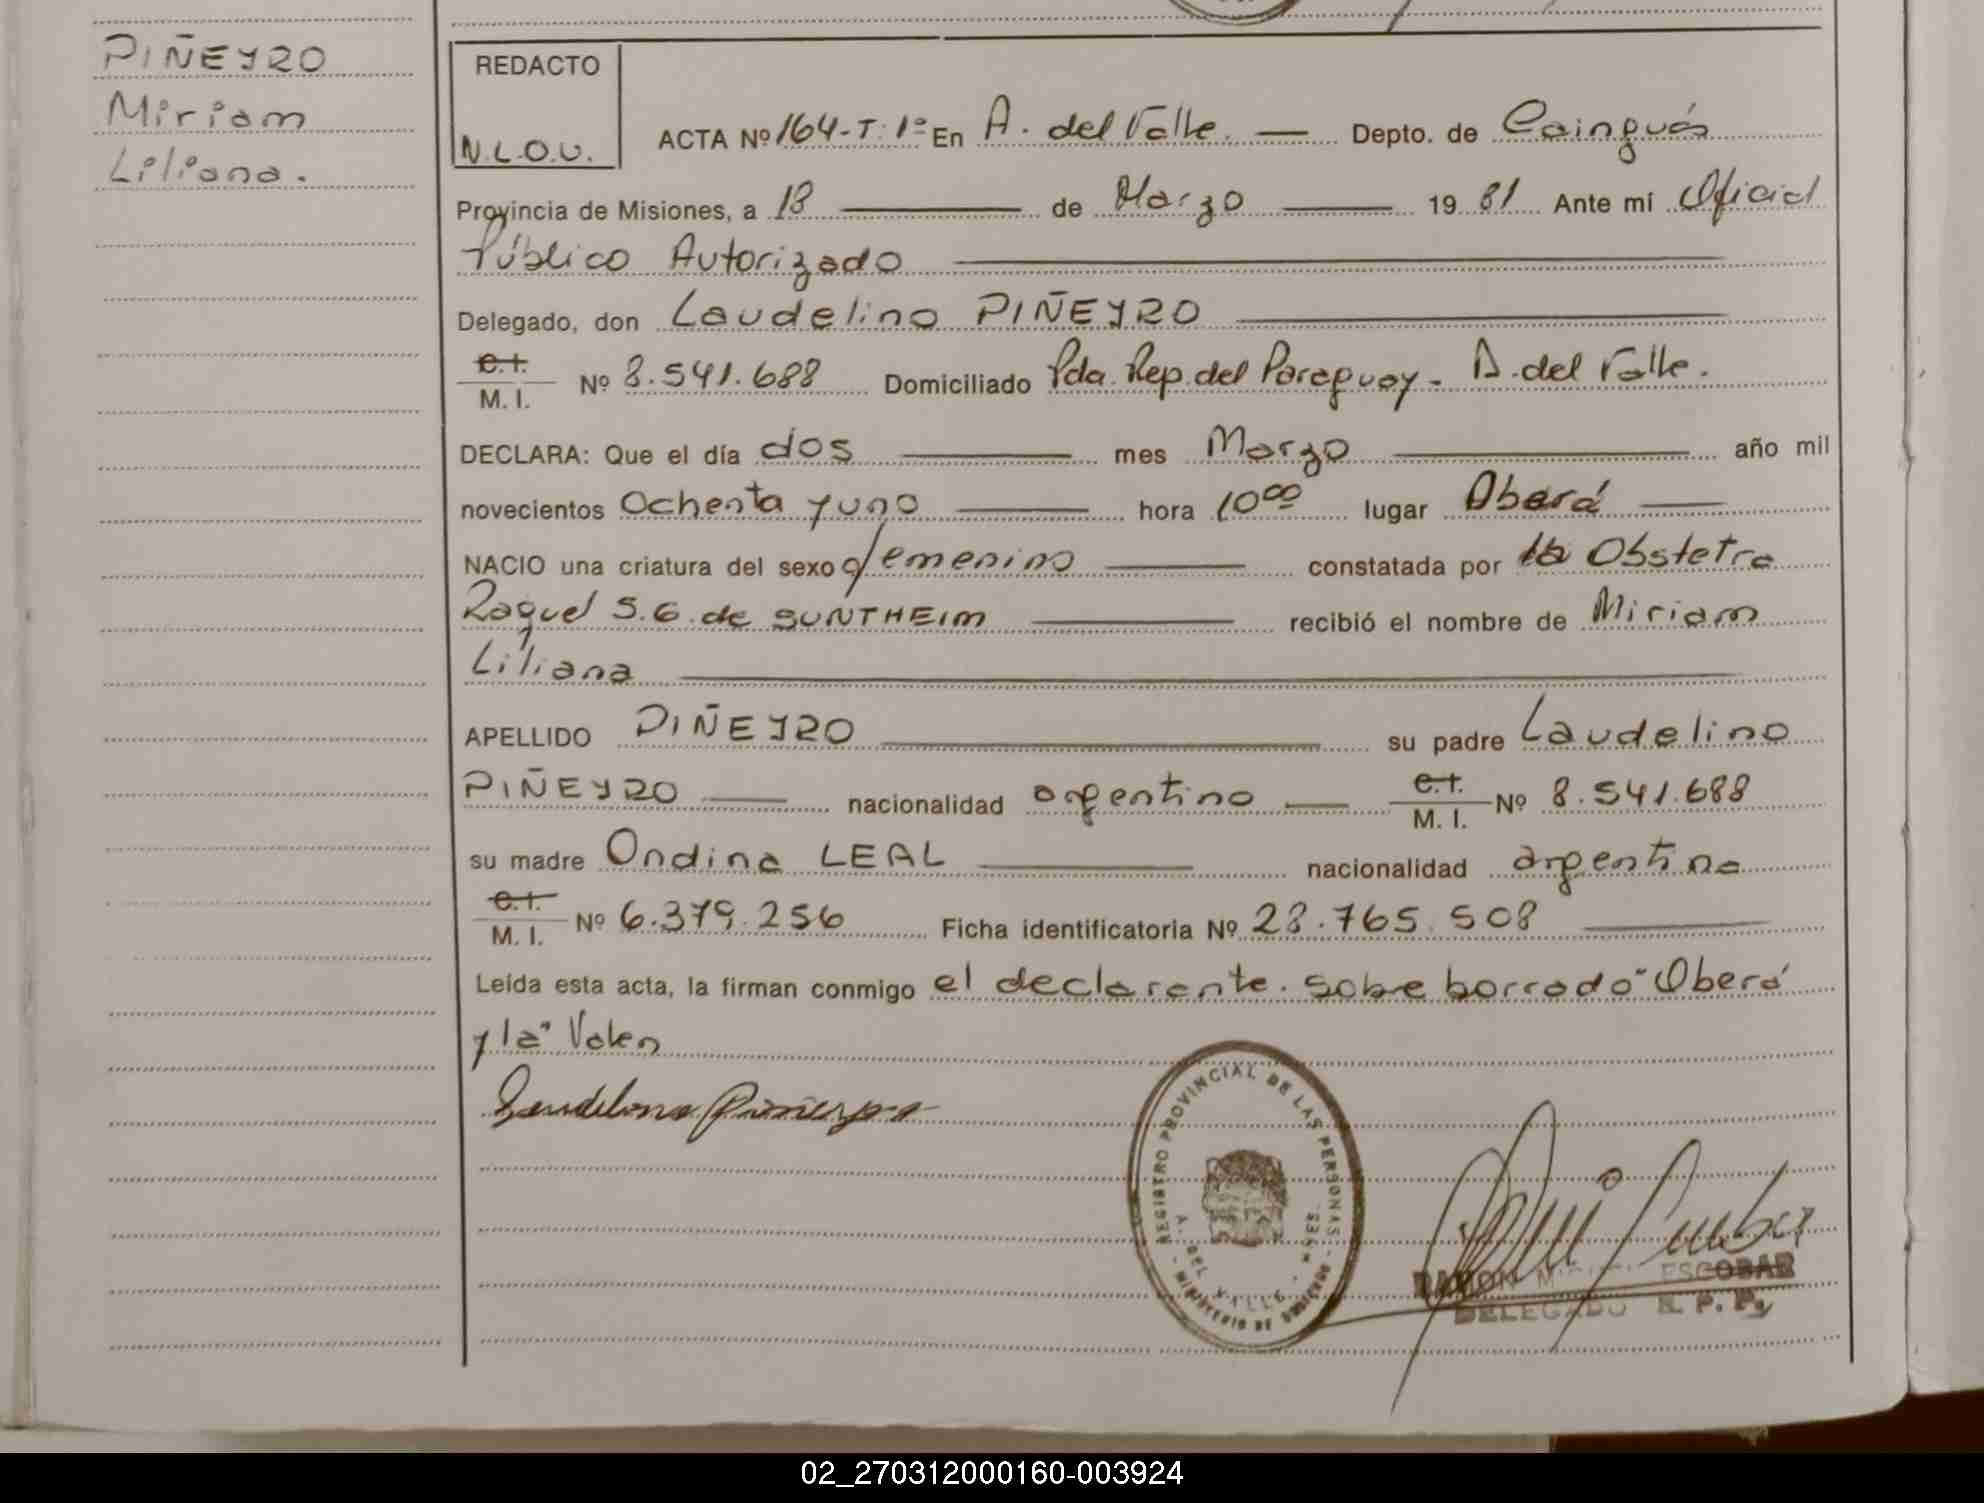 PIÑEYRO
Miriam
Liliana.
REDACTO
N.L.O.U.
ACTA Nº 164-T:1º En A. del Valle. Depto. de Cainguás
Provincia de Misiones, a 18 de Marzo 19 81 Ante mí Oficial
Público Autorizado
Delegado, don Laudelino PIÑEYRO
C.I.
M.I. Nº 8.541.688 Domiciliado Pda. Rep. del Paraguay - A. del Valle.
DECLARA: Que el día dos mes Marzo año mil
novecientos Ochenta y uno hora 10⁰⁰ lugar Oberá
NACIO una criatura del sexo femenino constatada por la Obstetra
Raquel S.G. de SUNTHEIM recibió el nombre de Miriam
Liliana
APELLIDO PIÑEYRO su padre Laudelino
PIÑEYRO nacionalidad argentino C.I.
M.I. Nº 8.541.688
su madre Ondina LEAL nacionalidad argentina
C.I.
M.I. Nº 6.379.256 Ficha identificatoria Nº 28.765.508
Leída esta acta, la firman conmigo el declarante. sobre borrado "Oberá
y la" Valen
Laudelino Piñeyro
REGISTRO PROVINCIAL DE LAS PERSONAS
A. DEL VALLE - MNES.
MINISTERIO DE GOBIERNO
RAMON MIGUEL ESCOBAR
DELEGADO R. P. P.
02_270312000160-003924